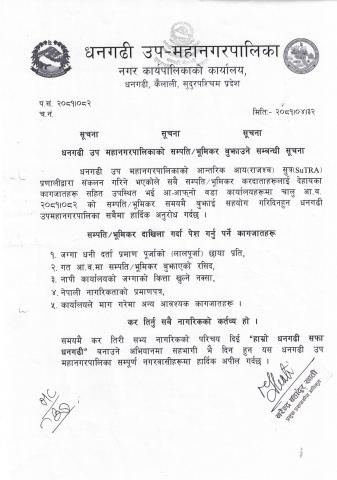 धनगढी उप-महानगरपालिका
नगर कार्यपालिकाको कार्यालय,
धनगढी, कैलाली, सुदुरपश्चिम प्रदेश
प.सं. २०८१/०८२
च.नं.
मितिः- २०८१/०४/३२
सूचना सूचना सूचना
धनगढी उप महानगरपालिकाको सम्पति/भूमिकर बुझाउने सम्वन्धी सूचना
धनगढी उप महानगरपालिकाको आन्तरिक आय(राजश्व) सुत्र(SuTRA)
प्रणालीद्वारा संकलन गरिने भएकोले सबै सम्पति/भूमिकर करदाताहरूलाई देहायका
कागजातहरू सहित उपस्थित भई आ-आफ्नो वडा कार्यालयहरूमा चालु आ.व.
२०८१/०८२ को सम्पति/भूमिकर समयमै बुझाई सहयोग गरिदिनहुन धनगढी
उपमहानगरपालिका सबैमा हार्दिक अनुरोध गर्दछ ।
सम्पति/भूमिकर दाखिला गर्दा पेश गर्नु पर्ने कागजातहरू
१. जग्गा धनी दर्ता प्रमाण पूर्जाको (लालपूर्जा) छाया प्रति,
२. गत आ.व.मा सम्पति/भूमिकर बुझाएको रसिद,
३. नापी कार्यालयको जग्गाको कित्ता खुल्ने नक्सा,
४. नेपाली नागरिकताको प्रमाणपत्र,
५. कार्यालयले माग गरेमा अन्य आवश्यक कागजातहरू ।
कर तिर्नु सबै नागरिकको कर्तव्य हो ।
समयमै कर तिरी सभ्य नागरिकको परिचय दिई "हाम्रो धनगढी सफा
धनगढी" बनाउने अभियानमा सहभागी भै दिन हुन यस धनगढी उप
महानगरपालिका सम्पूर्ण नगरवासीहरूमा हार्दिक अपील गर्दछ ।